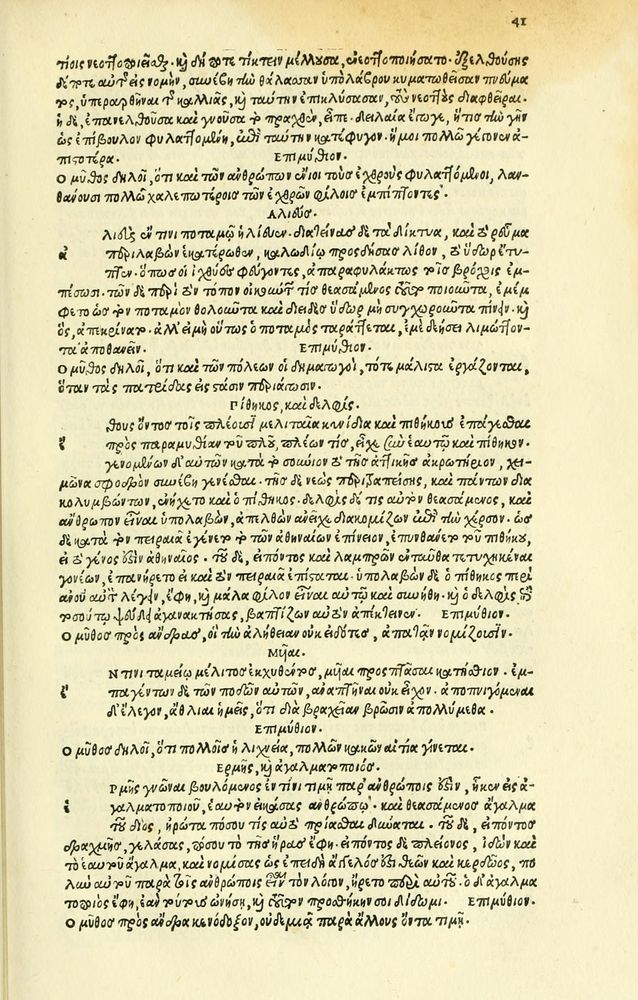 41
τισις νεοττοποιεῖσθαι. καὶ δή ποτε τίκτειν μέλλουσα, ἐνεοττοποιήσατο. ἐξελθούσης
δέ ποτε αὐτῆς εἰς νομὴν, συνέβη τὴν θάλασσαν ὑπὸ λάβρου κυματωθεῖσαν πνεύμα
τος, ὑπεραρθῆναι τῆς καλλιᾶς, καὶ ταύτην ἐπικλύσασαν, τοὺς νεοττοὺς διαφθεῖραι.
ἡ δὲ, ἐπανελθοῦσα καὶ γνοῦσα τὸ πραχθὲν, εἶπε. δειλαία ἔγωγε, ἥτις τὴν γῆν
ὡς ἐπίβουλον φυλαττομένη, ἐπὶ ταύτην κατέφυγον. ἥ μοι πολλῷ γέγονεν ἀ-
πιστοτέρα. Ἐπιμύθιον.
Ο μῦθος δηλοῖ, ὅτι καὶ τῶν ἀνθρώπων ἔνιοι τοὺς ἐχθροὺς φυλαττόμενοι, λαν-
θάνουσι πολλῷ χαλεπωτέροις τῶν ἐχθρῶν φίλοις ἐμπίπτοντες.
Αλιεύς.
λιεὺς ἔν τινι ποταμῷ ἡλίευεν. διατείνας δὲ τὰ δίκτυα, καὶ τὸ ῥεῦμα
ἁ περιλαβὼν ἑκατέρωθεν, καλωδίῳ προσδήσας λίθον, τὸ ὕδωρ ἔτυ-
πτεν. ὅπως οἱ ἰχθύες φεύγοντες, ἀπαραφυλάκτως τοῖς βρόχοις ἐμ-
πέσωσι. τῶν δὲ περὶ τὸν τόπον οἰκούντων τὶς θεασάμενος τοῦτο ποιοῦντα, ἐμέμ
φετο ὡς τὸν ποταμὸν θολοῦντα καὶ διειδὲς ὕδωρ μὴ συγχωροῦντα πίνειν. καὶ
ὃς, ἀπεκρίνατο. ἀλλ' εἰ μὴ οὕτως ὁ ποταμὸς ταράττεται, ἐμὲ δεήσει λιμώττον-
τα ἀποθανεῖν. Ἐπιμύθιον.
Ο μῦθος δηλοῖ, ὅτι καὶ τῶν πόλεων οἱ δημαγωγοὶ, τότε μάλιστα ἐργάζονται,
ὅταν τὰς πατρίδας εἰς στάσιν περιάγωσιν.
Πίθηκος, καὶ δελφίς.
θους ὄντος τοῖς πλέουσι μελιταῖα κυνίδια καὶ πιθήκους ἐπάγεσθαι
ἔ πρὸς παραμυθίαν τοῦ πλοῦ, πλέων τὶς, εἶχε σὺν ἑαυτῷ καὶ πίθηκον.
γενομένων δ' αὐτῶν κατὰ τὸ σούνιον τὸ τῆς ἀττικῆς ἀκρωτήριον, χει-
μῶνα σφοδρὸν συνέβη γενέσθαι. τῆς δὲ νεὼς περιτραπείσης, καὶ πάντων δια
κολυμβώντων, ἐνήχετο καὶ ὁ πίθηκος. δελφὶς δέ τις αὐτὸν θεασάμενος, καὶ
ἄνθρωπον εἶναι ὑπολαβὼν, ἀπελθὼν ἀνεῖχε διακομίζων ἐπὶ τὴν χέρσον. ὡς
δὲ κατὰ τὸν πειραιᾶ ἐγένετο τὸ τῶν ἀθηναίων ἐπίνειον, ἐπυνθάνετο τοῦ πιθήκου,
εἰ τὸ γένος ἐστὶν ἀθηναῖος. τοῦ δὲ, εἰπόντος καὶ λαμπρῶν ἐνταῦθα τετυχηκέναι
γονέων, ἐπανήρετο εἰ καὶ τὸν πειραιᾶ ἐπίσταται. ὑπολαβὼν δὲ ὁ πίθηκος περὶ
ἀνθρώπου αὐτὸν λέγειν, ἔφη, καὶ μάλα φίλον εἶναι αὐτῷ καὶ συνήθη. καὶ ὁ δελφὶς ἐπὶ
τοσούτῳ ψεύδει ἀγανακτήσας, βαπτίζων αὐτὸν ἀπέκτεινεν. Ἐπιμύθιον.
Ο μῦθος πρὸς ἄνδρας, οἳ τὴν ἀλήθειαν οὐκ εἰδότες, ἀπατᾶν νομίζουσιν.
Μυῖαι.
Ν τινι ταμείῳ μέλιτος ἐκχυθέντος, μυῖαι προσπτᾶσαι κατήσθιον. ἐμ-
ἐ παγέντων δὲ τῶν ποδῶν αὐτῶν, ἀναπτῆναι οὐκ εἶχον. ἀποπνιγόμεναι
δ' ἔλεγον, ἄθλιαι ἡμεῖς, ὅτι διὰ βραχεῖαν βρῶσιν ἀπολλύμεθα.
Ἐπιμύθιον.
Ο μῦθος δηλοῖ, ὅτι πολλοῖς ἡ λιχνεία, πολλῶν κακῶν αἰτία γίνεται.
Ἑρμῆς, καὶ ἀγαλματοποιός.
Ρμῆς γνῶναι βουλόμενος ἐν τίνι τιμῇ παρ' ἀνθρώποις ἐστὶν, ἧκεν εἰς ἀ-
ἑ γαλματοποιοῦ, ἑαυτὸν εἰκάσας ἀνθρώπῳ. καὶ θεασάμενος ἄγαλμα
τοῦ διὸς, ἠρώτα πόσου τὶς αὐτὸ πρίασθαι δύναται. τοῦ δὲ, εἰπόντος
δραχμῆς, γελάσας, πόσου τὸ τῆς ἥρας ἔφη. εἰπόντος δὲ πλείονος, ἰδὼν καὶ
τὸ ἑαυτοῦ ἄγαλμα, καὶ νομίσας ὡς ἐπειδὴ ἄγγελός ἐστι θεῶν καὶ κερδῷος, πο
λὺν αὐτοῦ παρὰ τοῖς ἀνθρώποις εἶναι τὸν λόγον, ἤρετο περὶ αὐτοῦ. ὁ δ' ἀγαλμα
τοποιὸς ἔφη, ἐὰν τούτους ὠνήσῃ, καὶ τοῦτον προσθήκην σοι δίδωμι. Ἐπιμύθιον.
Ο μῦθος πρὸς ἄνδρα κενόδοξον, οὐδεμιᾷ παρὰ ἄλλοις ὄντα τιμῇ.